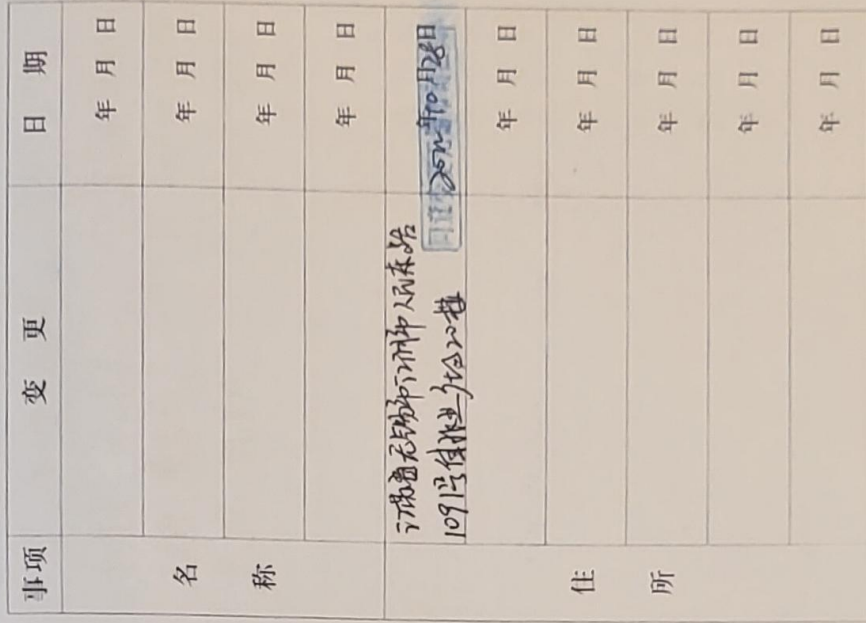 事项 变更 日期
名称
年 月 日
年 月 日
年 月 日
年 月 日
住所
江苏省无锡市江阴市人民东路
1091号 20楼
年10月28日
年 月 日
年 月 日
年 月 日
年 月 日
年 月 日